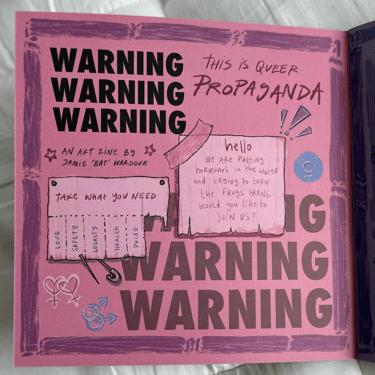 WARNING
WARNING
WARNING
THIS IS QUEER
PROPAGANDA
AN ART ZINE BY
JAMIE 'BAT' WARDOUR
hello
WE ARE PUTTING
HORMONES IN THE WATER
AND TRYING TO TURN
THE FROGS TRANS.
WOULD YOU LIKE TO
JOIN US?
TAKE WHAT YOU NEED
LOVE
SAFETY
LOYALTY
HEALTH
PRIDE
WARNING
WARNING
WARNING